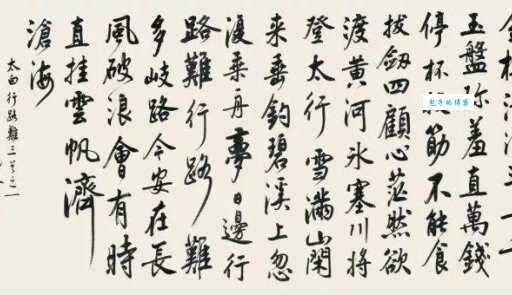 玉盤珍羞直萬錢
停杯投筯不能食
拔劒四顧心茫然欲
渡黄河冰塞川將
登太行雪滿山閑
来垂釣碧溪上忽
復乘舟夢日邊行
路難行路難
多岐路今安在長
風破浪會有時
直挂雲帆濟
滄海
太白行路難三首之一
包子的博客